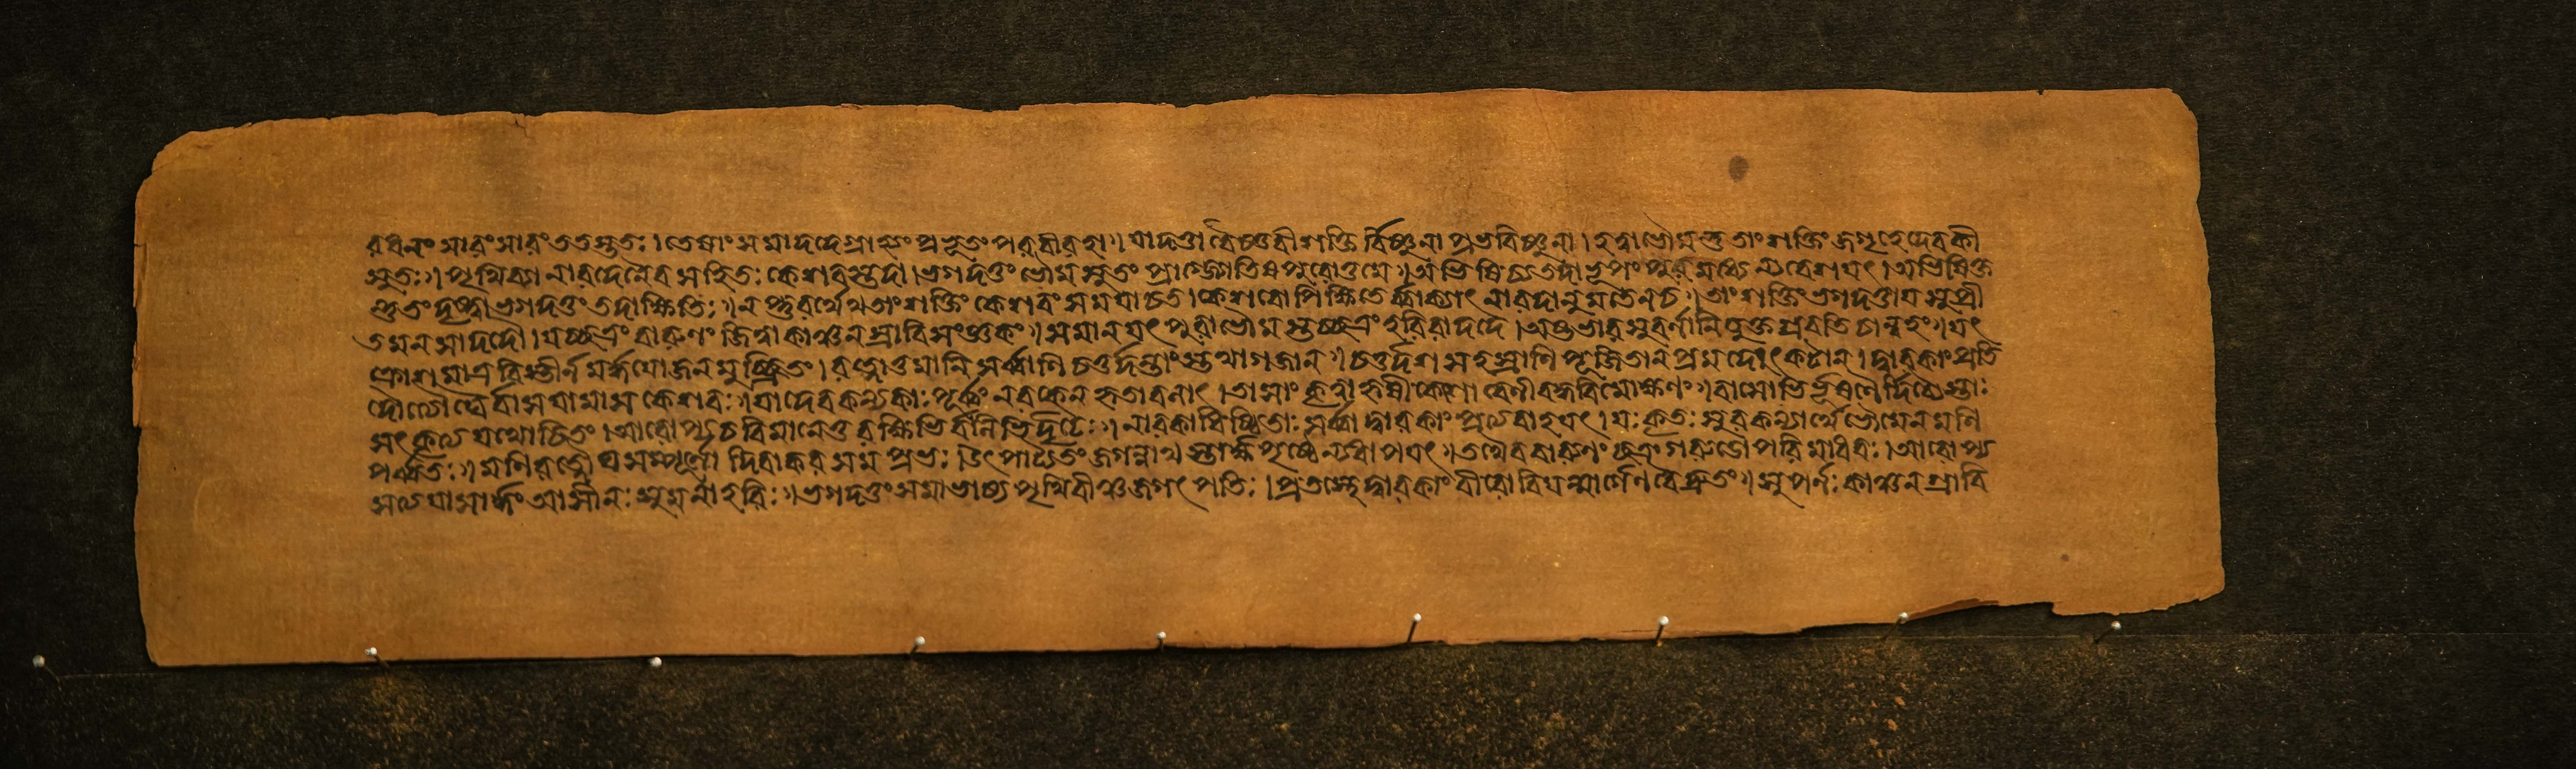 রধনং সারং সারং ততস্ততঃ । তেষাং সমাদদে গ্রাহ্যং প্রভূতং পরবীরহা ॥ যা দত্তা বৈষ্ণবী শক্তি র্বিষ্ণুনা প্রভবিষ্ণুনা । হত্বা ভৌমন্তু তাং শক্তিং জগৃহে দেবকী
সুতঃ ॥ পৃথিব্যা নারদেনৈব সহিতঃ কেশবস্তদা । ভগদত্তং ভৌমসুতং প্রাগ্জ্যোতিষপুরোত্তমে ॥ অভিষিচ্য তদা ভূপং পুরমধ্যে ন্যবেশয়ৎ । অভিষিক্ত
ন্তু তং দৃষ্ট্বা ভগদত্তং তদা ক্ষিতিঃ ॥ নপ্তুরর্থেথ তাং শক্তিং কেশবং সমযাচত । কেশবোপি ক্ষিতে র্ব্বাক্যাৎ নারদানুমতেন চ ॥ তাং শক্তিং ভগদত্তায় সুপ্রী
তমনসা দদৌ । যচ্ছত্রং বারুণং জিত্বা কাঞ্চনস্রাবিসংজ্ঞকং ॥ সমানয়ৎ পুরা ভৌম স্তচ্ছত্রং হরিরাদদে । অষ্টভারসুবর্ণানি যুক্ত স্রবতি চান্বহং ॥ যৎ
ক্রোশমাত্রবিস্তীর্ন মর্দ্ধযোজনমুচ্ছ্রিতং । রত্নোত্তমানি সর্ব্বাণি চতুর্দন্তাংস্তথা গজান ॥ চতুর্দশ সহস্রাণি পূজিতান প্রমদোৎকটান । দ্বারকাং প্রতি
দৌত্যৌঘৈ র্বাসয়ামাস কেশবঃ ॥ যা দেবকন্যকাঃ পূর্ব্বং নরকেন হৃতা বলাৎ । তাসাং কৃত্বা হৃষীকেশো বেনীবন্ধবিমোক্ষণং ॥ বাসোভি র্ভূষণৈ র্দিব্যৈস্তাঃ
সৎকৃত্য যথোচিতং । আরোপ্য চ বিমানেতু রক্ষিভি র্বলিভি র্দৃঢ়ৈঃ ॥ নারকাধিষ্ঠিতাঃ সর্ব্বা দ্বারকাং প্রত্যবাহয়ৎ । যঃ কৃতঃ সুরকন্যার্থে ভৌমেন মণি
পর্ব্বতঃ ॥ মণিরত্নৌঘসম্পূর্ণো দিবাকরসমপ্রভঃ । উৎপাট্য তং জগন্নাথ স্তার্ক্ষ্যপৃষ্ঠে ন্যধাপয়ৎ ॥ তথৈব বারুণং ছত্রং গরুডোপরি মাধবঃ । আরোপ্য
সত্যয়া সার্দ্ধং আসীনঃ সুমনা হরিঃ ॥ ভগদত্তং সমাভাষ্য পৃথিবীঞ্চ জগৎপতিঃ । প্রতস্থে দ্বারকাং বীরো বিয়ন্মার্গেণ বৈ দ্রুতং ॥ সুপর্নঃ কাঞ্চনস্রাবি